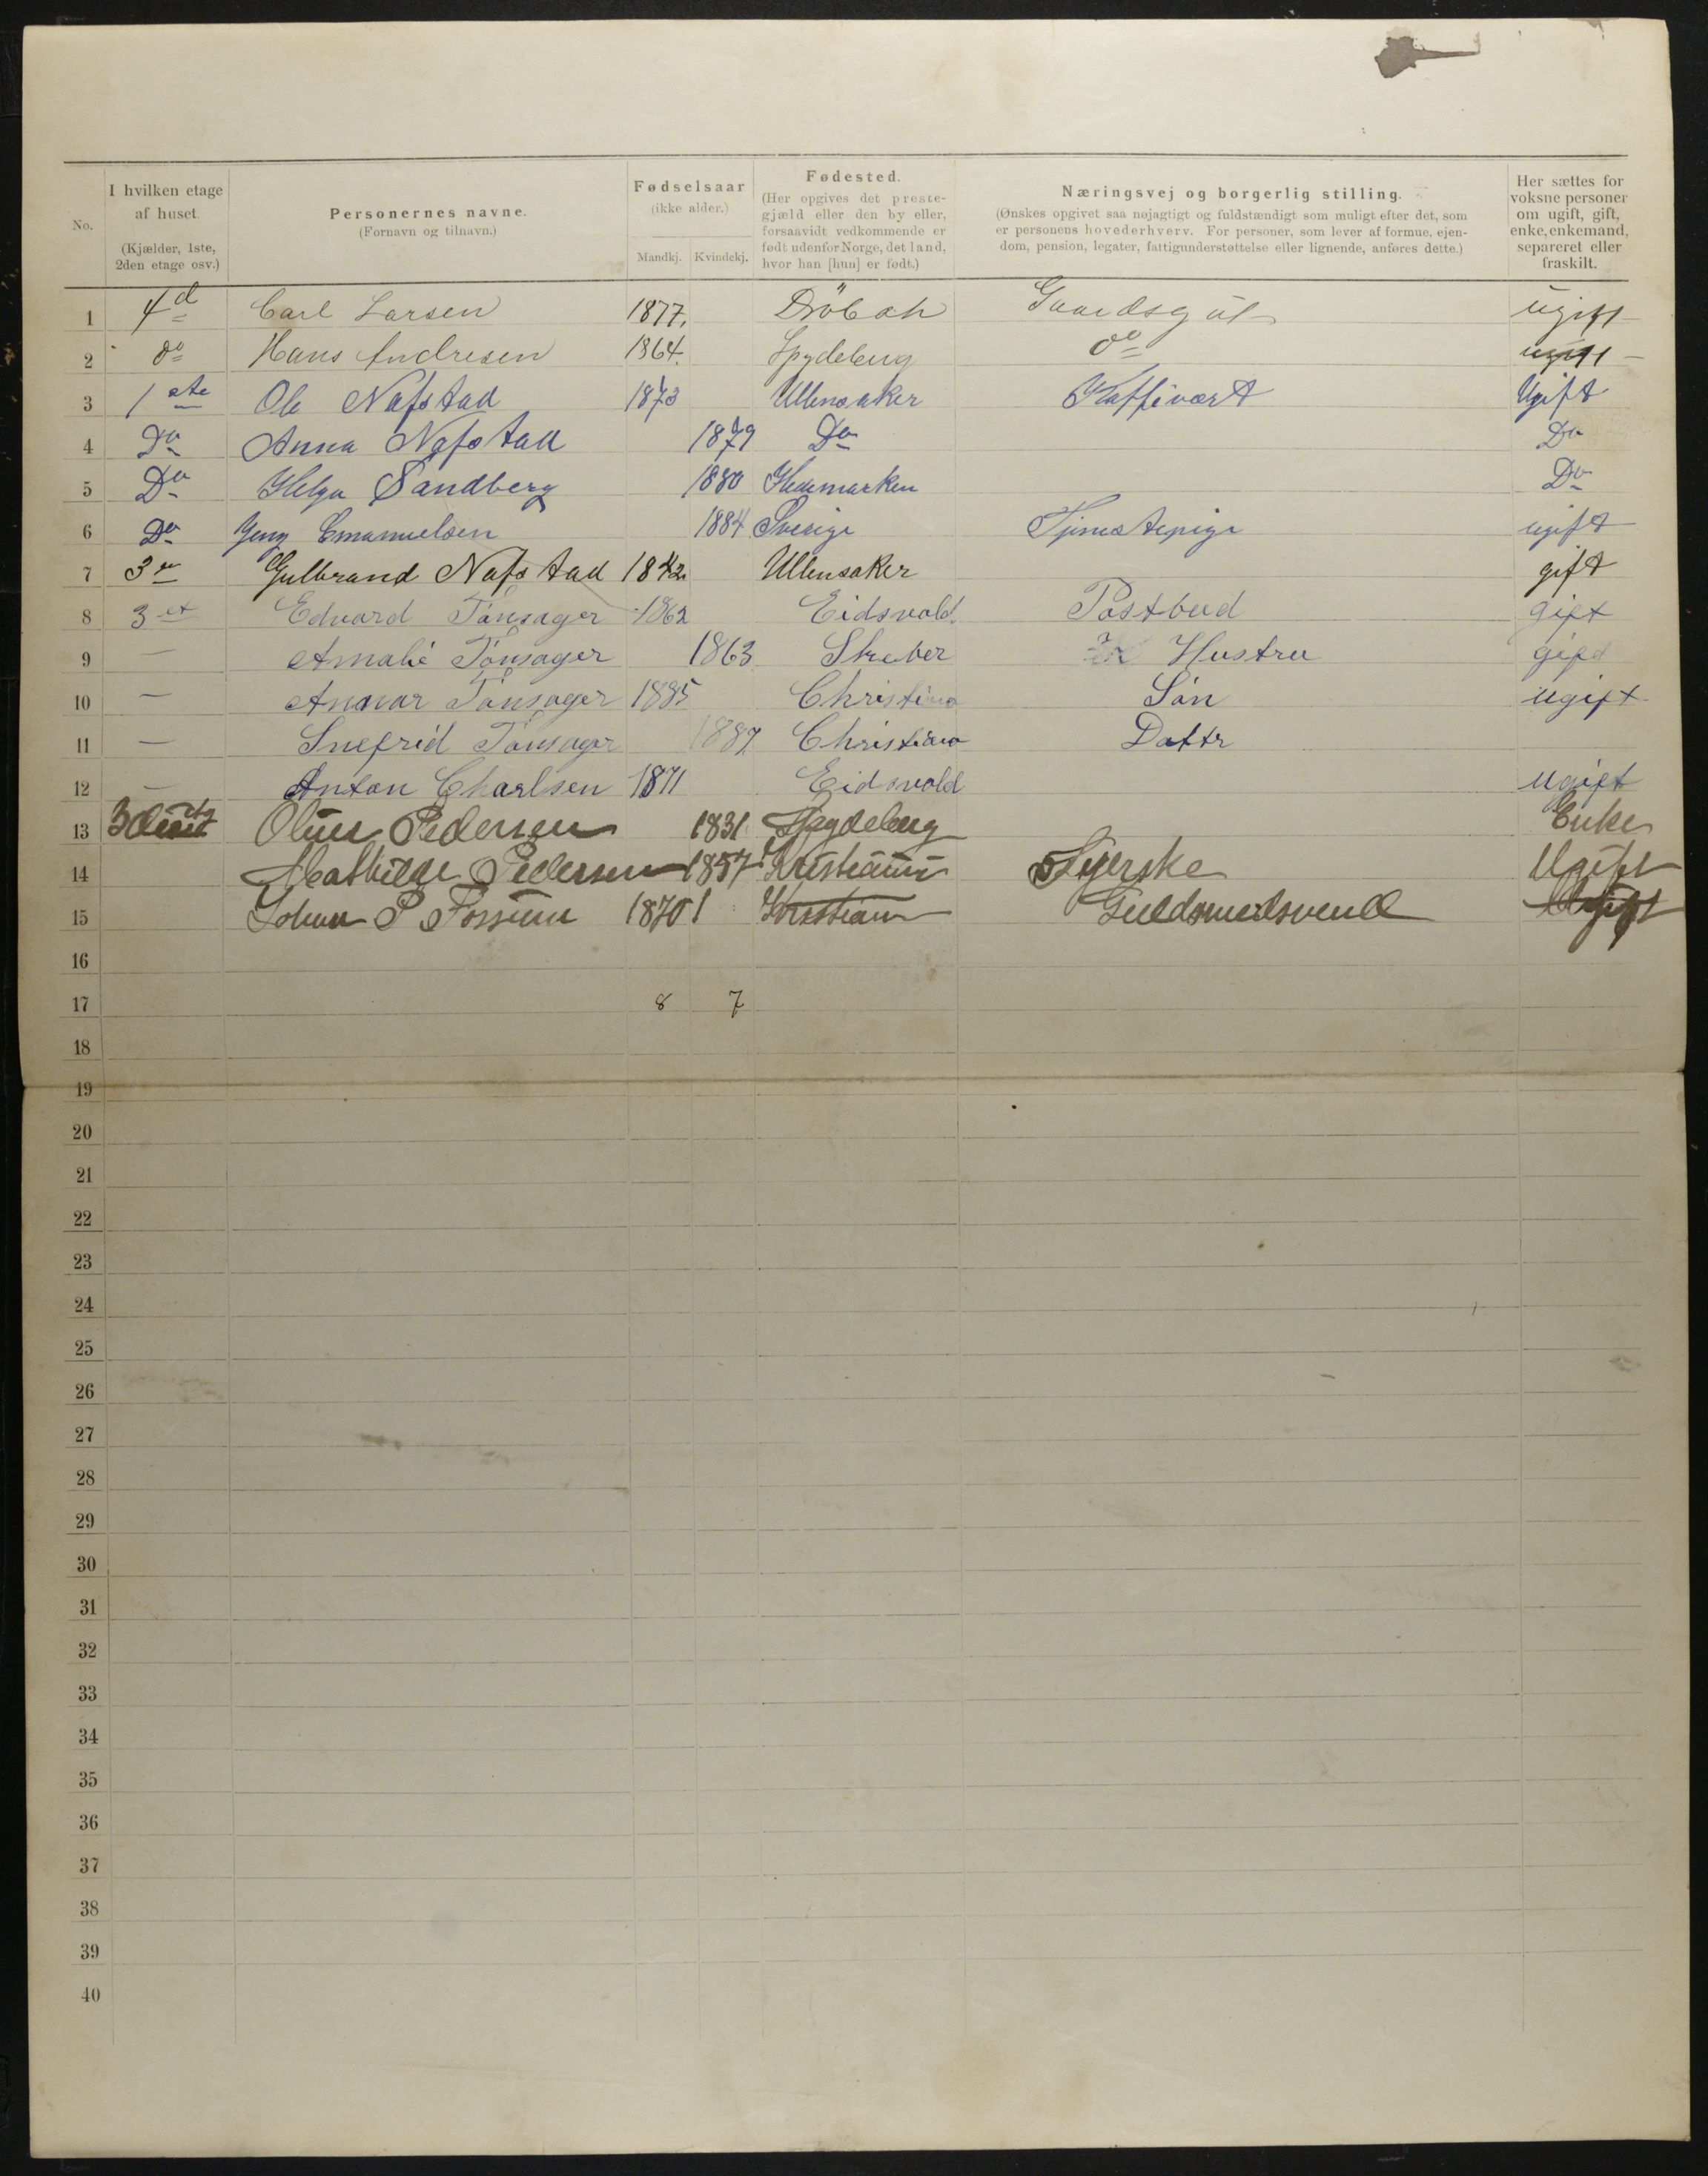 No. | I hvilken etage af huset. (Kjælder, 1ste, 2den etage osv.) | Personernes navne. (Fornavn og tilnavn.) | Fødselsaar (ikke alder.) Mandkj. Kvindekj. | Fødested. (Her opgives det prestegjæld eller den by eller, forsaavidt vedkommende er født udenfor Norge, det land, hvor han [hun] er født.) | Næringsvej og borgerlig stilling. (Ønskes opgivet saa nøjagtigt og fuldstændigt som muligt efter det, som er personens hovederhverv. For personer, som lever af formue, ejendom, pension, legater, fattigunderstøttelse eller lignende, anføres dette.) | Her sættes for voksne personer om ugift, gift, enke, enkemand, separeret eller fraskilt.
1 4d Carl Larsen 1877. Dröbak Gaardsgut ugift
2 do Hans Andresen 1864. Spydeberg do ugift
3 1ste Ole Nafstad 1873 Ullensaker Kaffivært Ugift
4 Do Anna Nafstad 1879 Do Do
5 Do Helga Sandberg 1880 Hedemarken Do
6 Do Jeny Emanuelsen 1884 Sverige Tjenestepige ugift
7 3 Gulbrand Nafstad 1842 Ullensaker gift
8 3 et Edvard Tønsager 1862 Eidsvold. Postbud gift
9 — Amalie Tønsager 1863 Hustru gift
10 — Annar Tønsager 1885 Christiana Søn ugift
11 — Snefrid Tønsager 1887 Christiana Dattr
12 — Anton Charlsen 1871 Eidsvold ugift
13 Pedersen 1831 Spydeberg Enke
14 Mathilde Pedersen 1857 Kristiania Syerske Ugift
15 Johan P Fossum 1870 1 Kristiania Guldsmedsvend Ugift
16
17 8 7
18
19
20
21
22
23
24
25
26
27
28
29
30
31
32
33
34
35
36
37
38
39
40